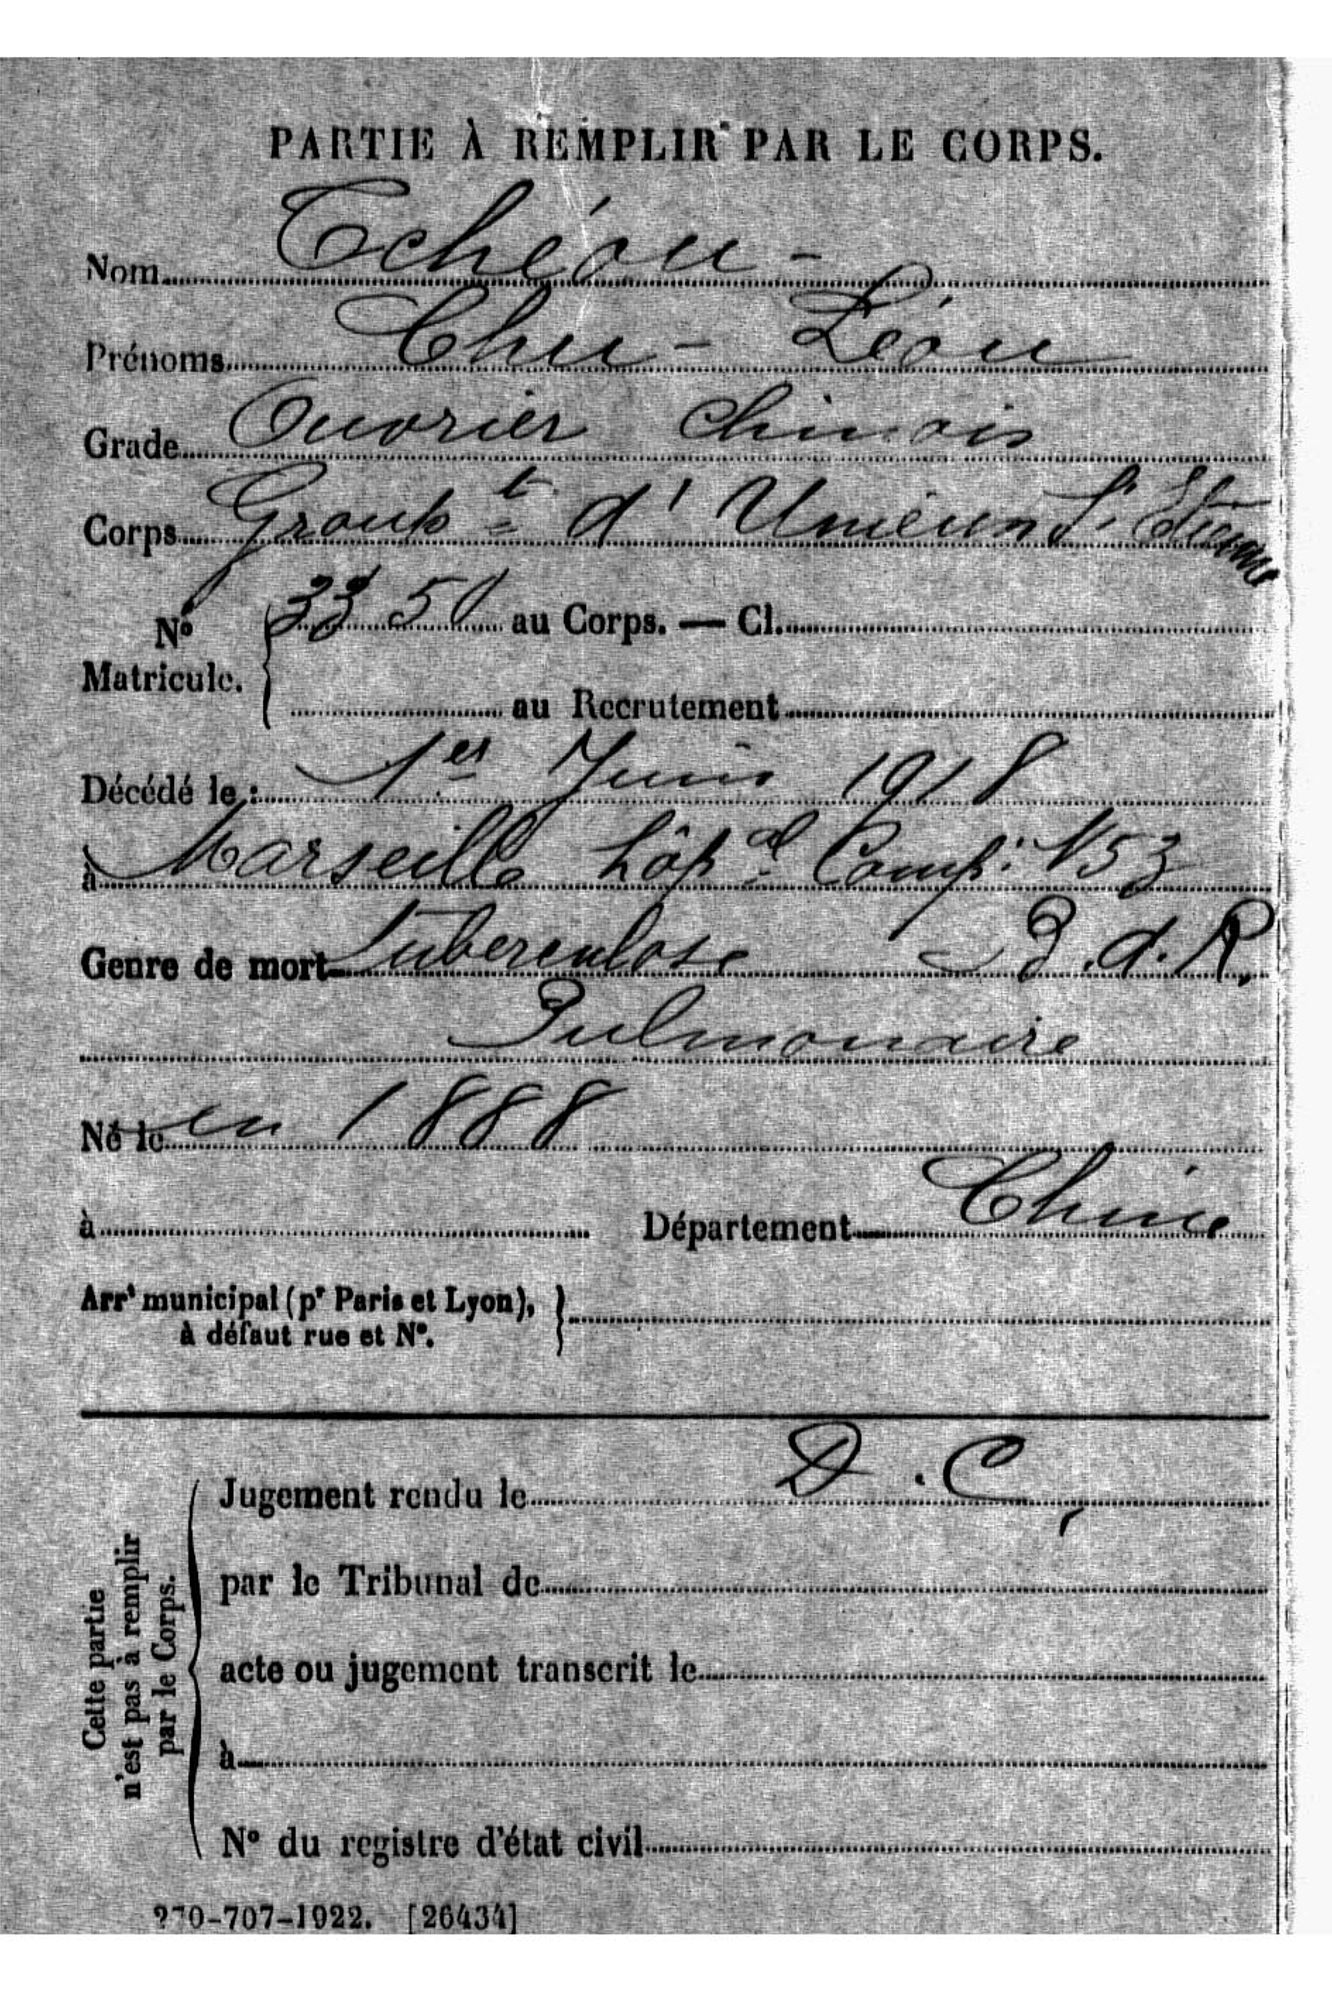 PARTIE À REMPLIR PAR LE CORPS.
Nom Tchéou -
Prénoms Chu - Léou
Grade Ouvrier chinois
Corps Group.t d' Unieux St. Etienne
No Matricule. 3350 au Corps. — Cl.
au Recrutement
Décédé le : 1er Juin 1918
à Marseille hôp.al Comp.
Genre de mort Tuberculose - d. R.
Pulmonaire
Né le en 1888
à Département Chine
Arrt municipal (pr Paris et Lyon),
à défaut rue et No.
D. C.
Jugement rendu le
par le Tribunal de
acte ou jugement transcrit le
à
No du registre d'état civil
Cette partie
n'est pas à remplir
par le Corps.
270-707-1922. [26434]